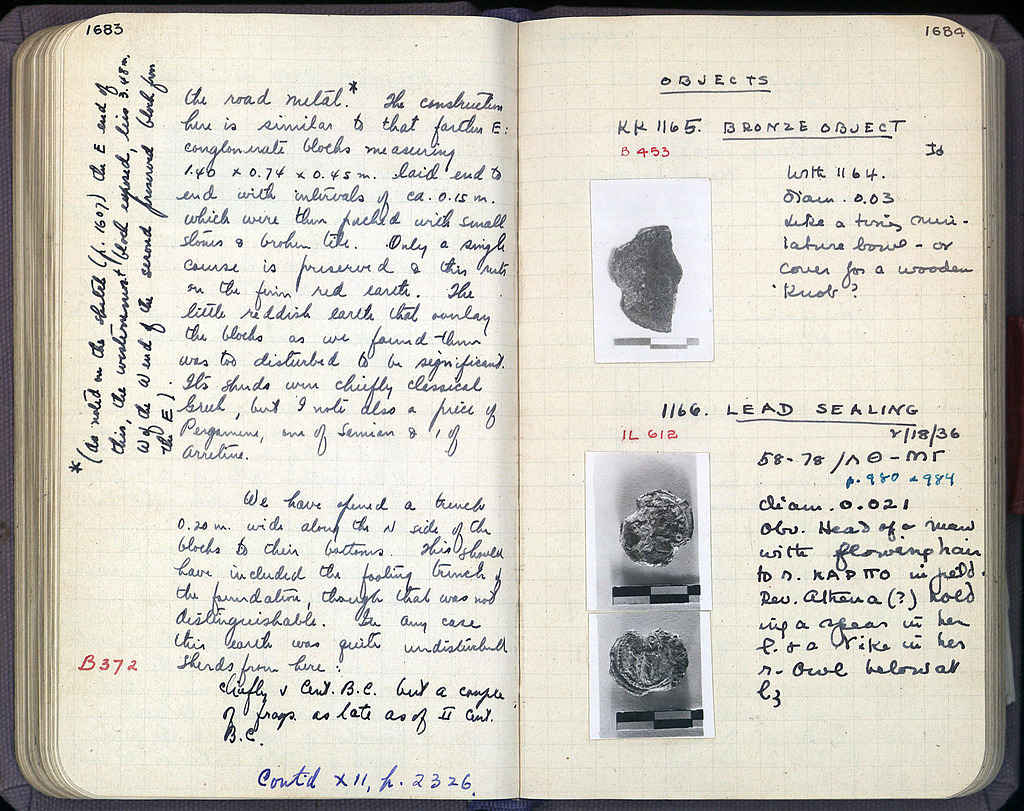 1683
the road metal.* The construction
here is similar to that farther E:
conglomerate blocks measuring
1.40 x 0.74 x 0.45 m. laid end to
end with intervals of ca. 0.15 m.
which were then packed with small
stones & broken tile. Only a single
course is preserved & this rests
on the firm red earth. The
little reddish earth that overlay
the blocks as we found them
was too disturbed to be significant.
Its sherds were chiefly classical
Greek, but I note also a piece of
Pergamene, one of Samian & 1 of
Arretine.
* (As noted on the sketch (p. 1607) the E end of
this, the westernmost block exposed, lies 3.48 m.
W of the W end of the second preserved block from
the E).
We have opened a trench
0.20 m. wide along the N side of the
blocks to their bottoms. This should
have included the footing trench of
the foundation, though that was not
distinguishable. In any case
this earth was quite undisturbed
B 372
Sherds from here:
chiefly V Cent. B.C. but a couple
of frags. as late as of II Cent.
B.C.
Cont'd XII, p. 2326.
1684
OBJECTS
KK 1165. BRONZE OBJECT
B 453
Id
With 1164.
Diam. 0.03
Like a tiny min-
iature bowl - or
cover for a wooden
knob?
1166. LEAD SEALING
IL 612
V/18/36
58-78/ΛΘ-ΜΓ
p. 980 + 984
diam. 0.021
Obv. Head of a man
with flowing hair
to r. ΚΑΡΠΟ in field.
Rev. Athena (?) hold
ing a spear in her
l. & a Nike in her
r. Owl below at
l.